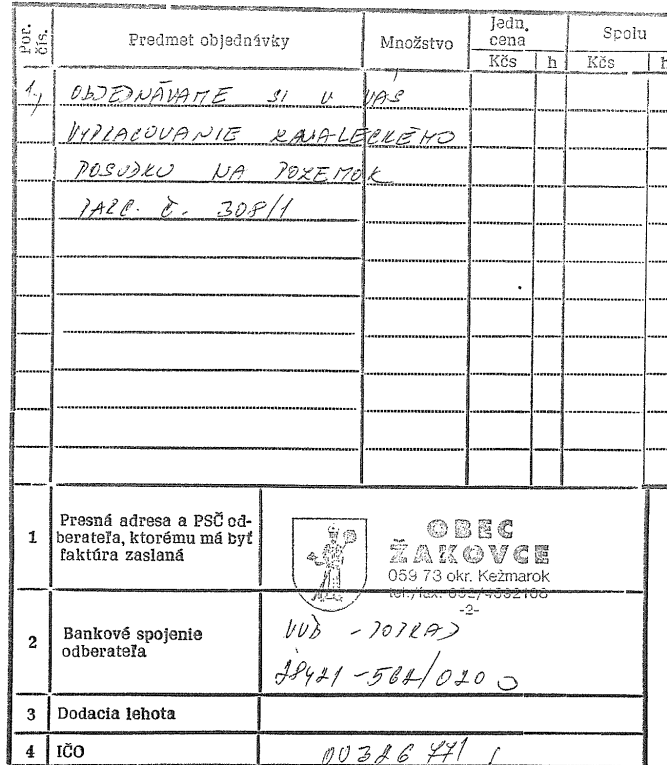 Por. čís. Predmet objednávky Množstvo Jedn. cena Spolu
Kčs h Kčs h
1, OBJEDNÁVAME SI U VÁS
VYPRACOVANIE ZNALECKÉHO
POSUDKU NA POZEMOK
PARC. Č. 308/1
1 Presná adresa a PSČ od-
berateľa, ktorému má byť
faktúra zaslaná
OBEC
ŽAKOVCE
059 73 okr. Kežmarok
tel./fax:
-2-
2 Bankové spojenie
odberateľa
VÚB - POPRAD
28421-562/0200
3 Dodacia lehota
4 IČO 00326771